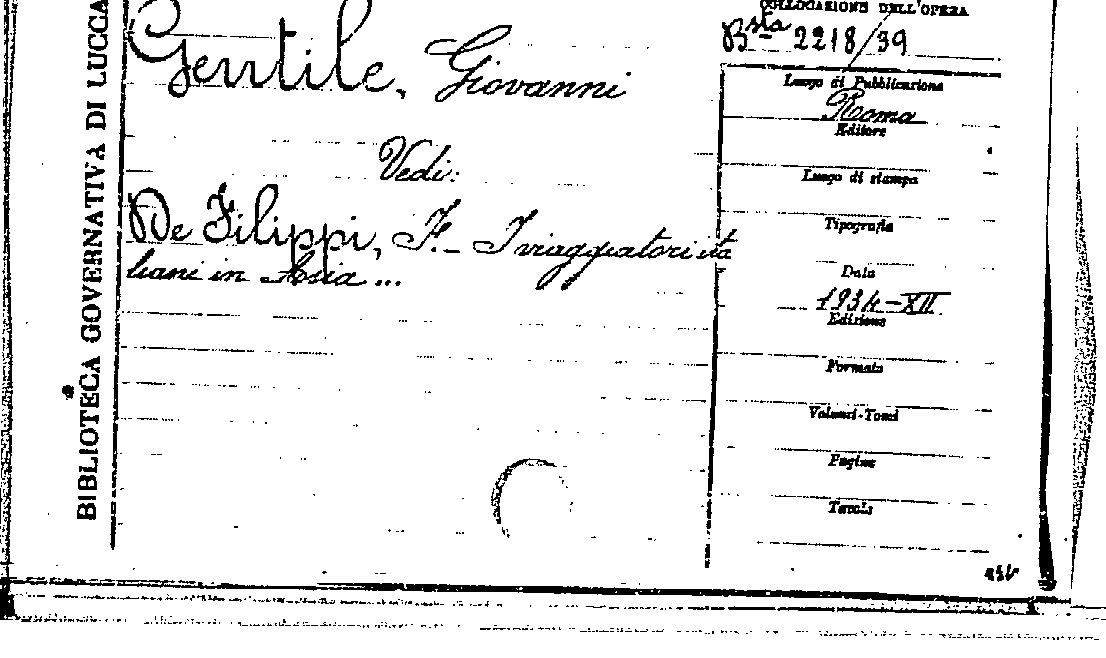 BIBLIOTECA GOVERNATIVA DI LUCCA
Gentile, Giovanni
Vedi:
De Filippi, F. - I viaggiatori ita
liani in Asia ...
COLLOCAZIONE DELL'OPERA
Bsta 2218/39
Luogo di Pubblicazione
Roma
Editore
Luogo di stampa
Tipografia
Data
1934-XII
Edizione
Formato
Volumi-Tomi
Pagine
Tavole